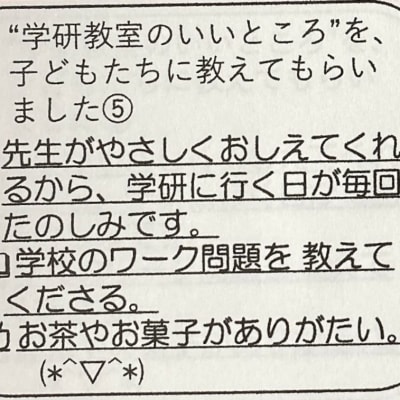 “学研教室のいいところ”を、
子どもたちに教えてもらい
ました⑤
先生がやさしくおしえてくれ
るから、学研に行く日が毎回
たのしみです。
学校のワーク問題を 教えて
くださる。
お茶やお菓子がありがたい。
(*^▽^*)